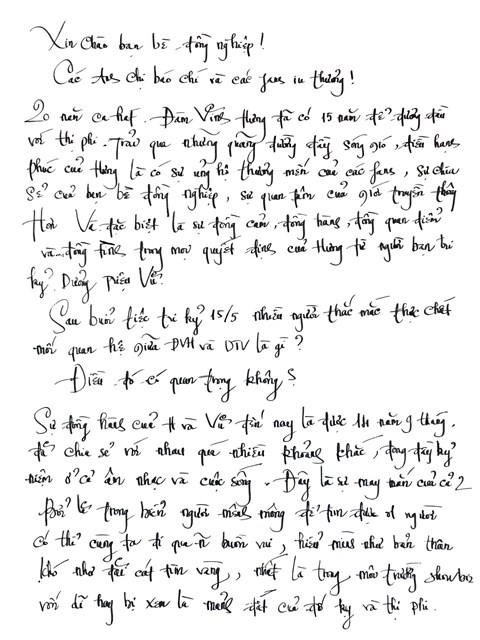 Xin chào bạn bè đồng nghiệp!
Các Anh Chị báo chí và các fans iu thương!
20 năm ca hát. Đàm Vĩnh Hưng đã có 15 năm để đương đầu
với thị phi. Trải qua những quãng đường đầy sóng gió, điều hạnh
phúc của Hưng là có sự ủng hộ thương mến của các fans, sự chia
sẻ của bạn bè đồng nghiệp, sự quan tâm của giới truyền thông
Hơn Và đặc biệt là sự đồng cảm, đồng hành, đồng quan điểm
và.. đồng tình trong mọi quyết định của Hưng từ người bạn tri
kỷ Dương Triệu Vũ.
Sau buổi tiệc tri kỷ 15/5 nhiều người thắc mắc thực chất
mối quan hệ giữa ĐVH và DTV là gì?
Điều đó có quan trọng không?
Sự đồng hành của H và Vũ đến nay là được 14 năm 9 tháng.
để chia sẻ với nhau quá nhiều khoảnh khắc, đong đầy kỷ
niệm ở cả âm nhạc và cuộc sống. Đây là sự may mắn của cả 2
Bởi lẽ trong biển người mênh mông để tìm được 01 người
có thể cùng ta đi qua ~n buồn vui, hiểu mình như bản thân
khó như đãi cát tìm vàng, nhất là trong môi trường showbiz
vốn dĩ hay bị xem là mảnh đất của đố kỵ và thị phi.